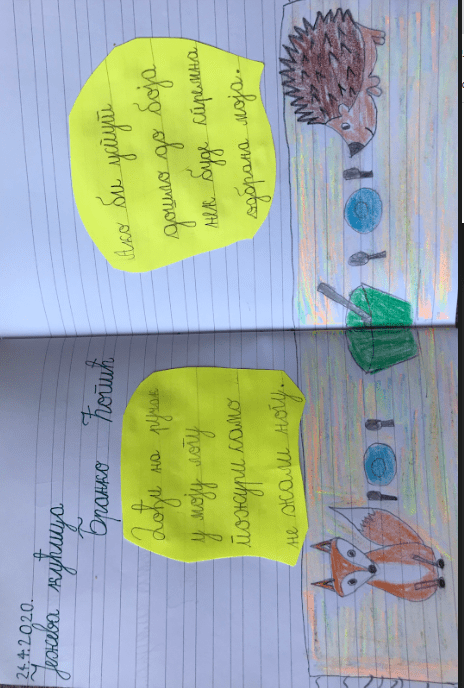 24.4.2020.
Јежева кућица
Бранко Ћопић
Дођи на ручак
у моју логу
пожури само
не жали ногу.
Ако би успут
дошло до боја
нек буде спремна
одбрана моја.